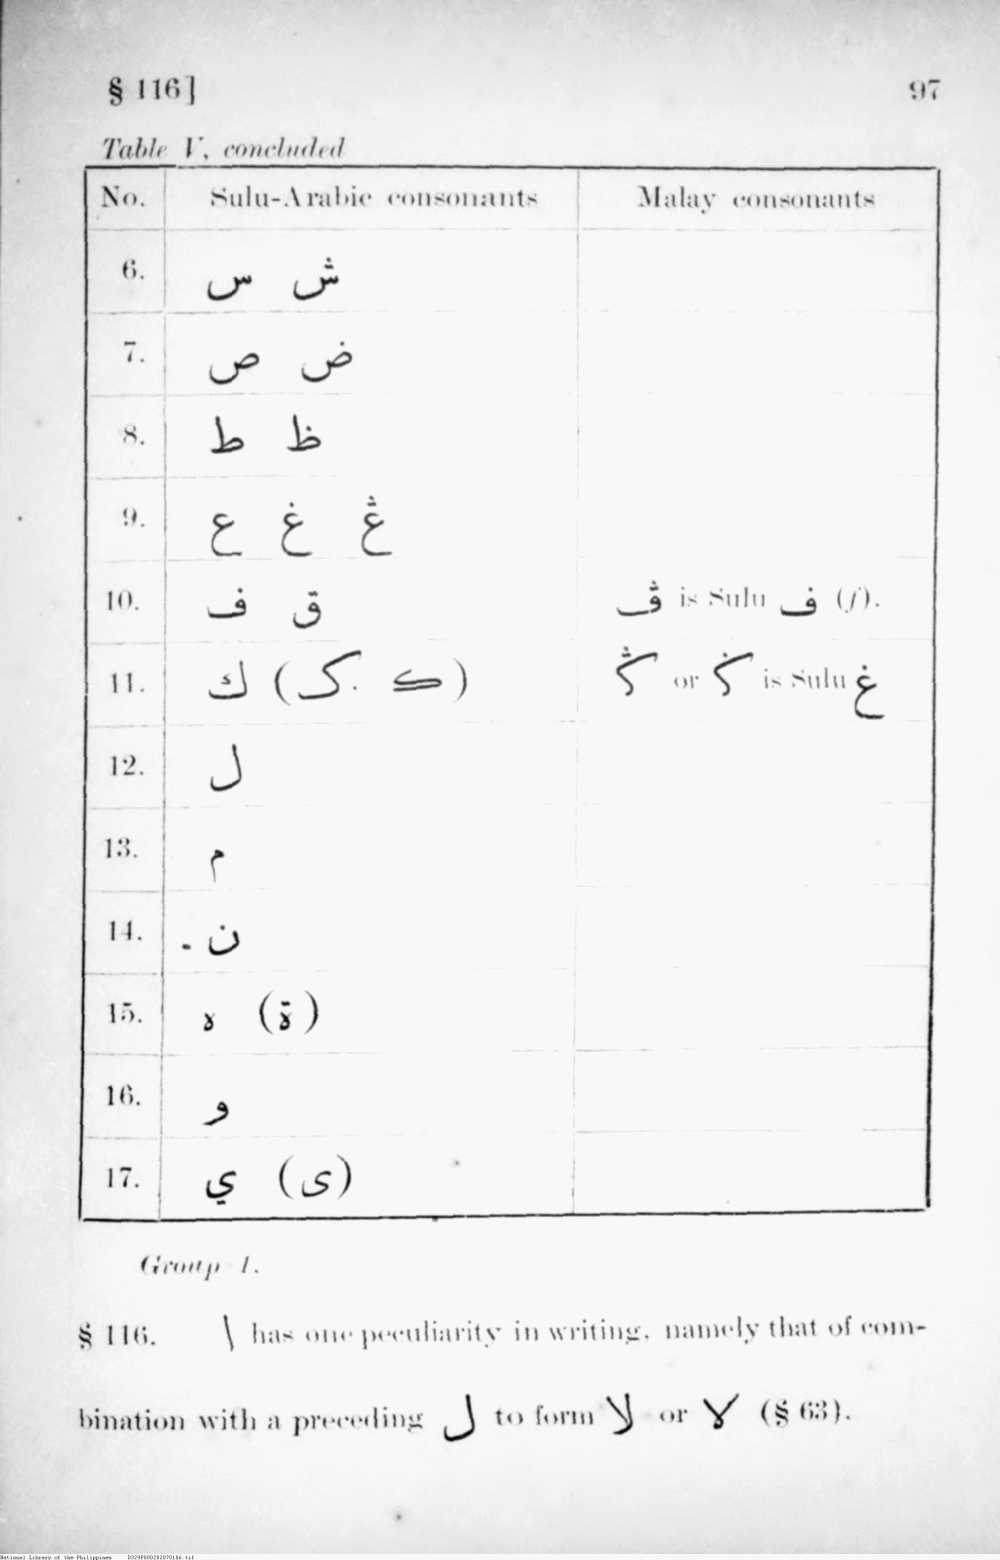 § 116]
97
Table V, concluded
No. Sulu-Arabic consonants Malay consonants
6. س ش
7. ص ض
8. ط ظ
9. ع غ ڠ
10. ف ق ڤ is Sulu ف (f).
11. ك (ک . ڪ) ڭ or ݢ is Sulu غ
12. ل
13. م
14. ن
15. ه (ة)
16. و
17. ي (ى)
Group 1.
§ 116. ا has one peculiarity in writing, namely that of com-
bination with a preceding ل to form لا or لا (§ 63).
National Library of the Philippines